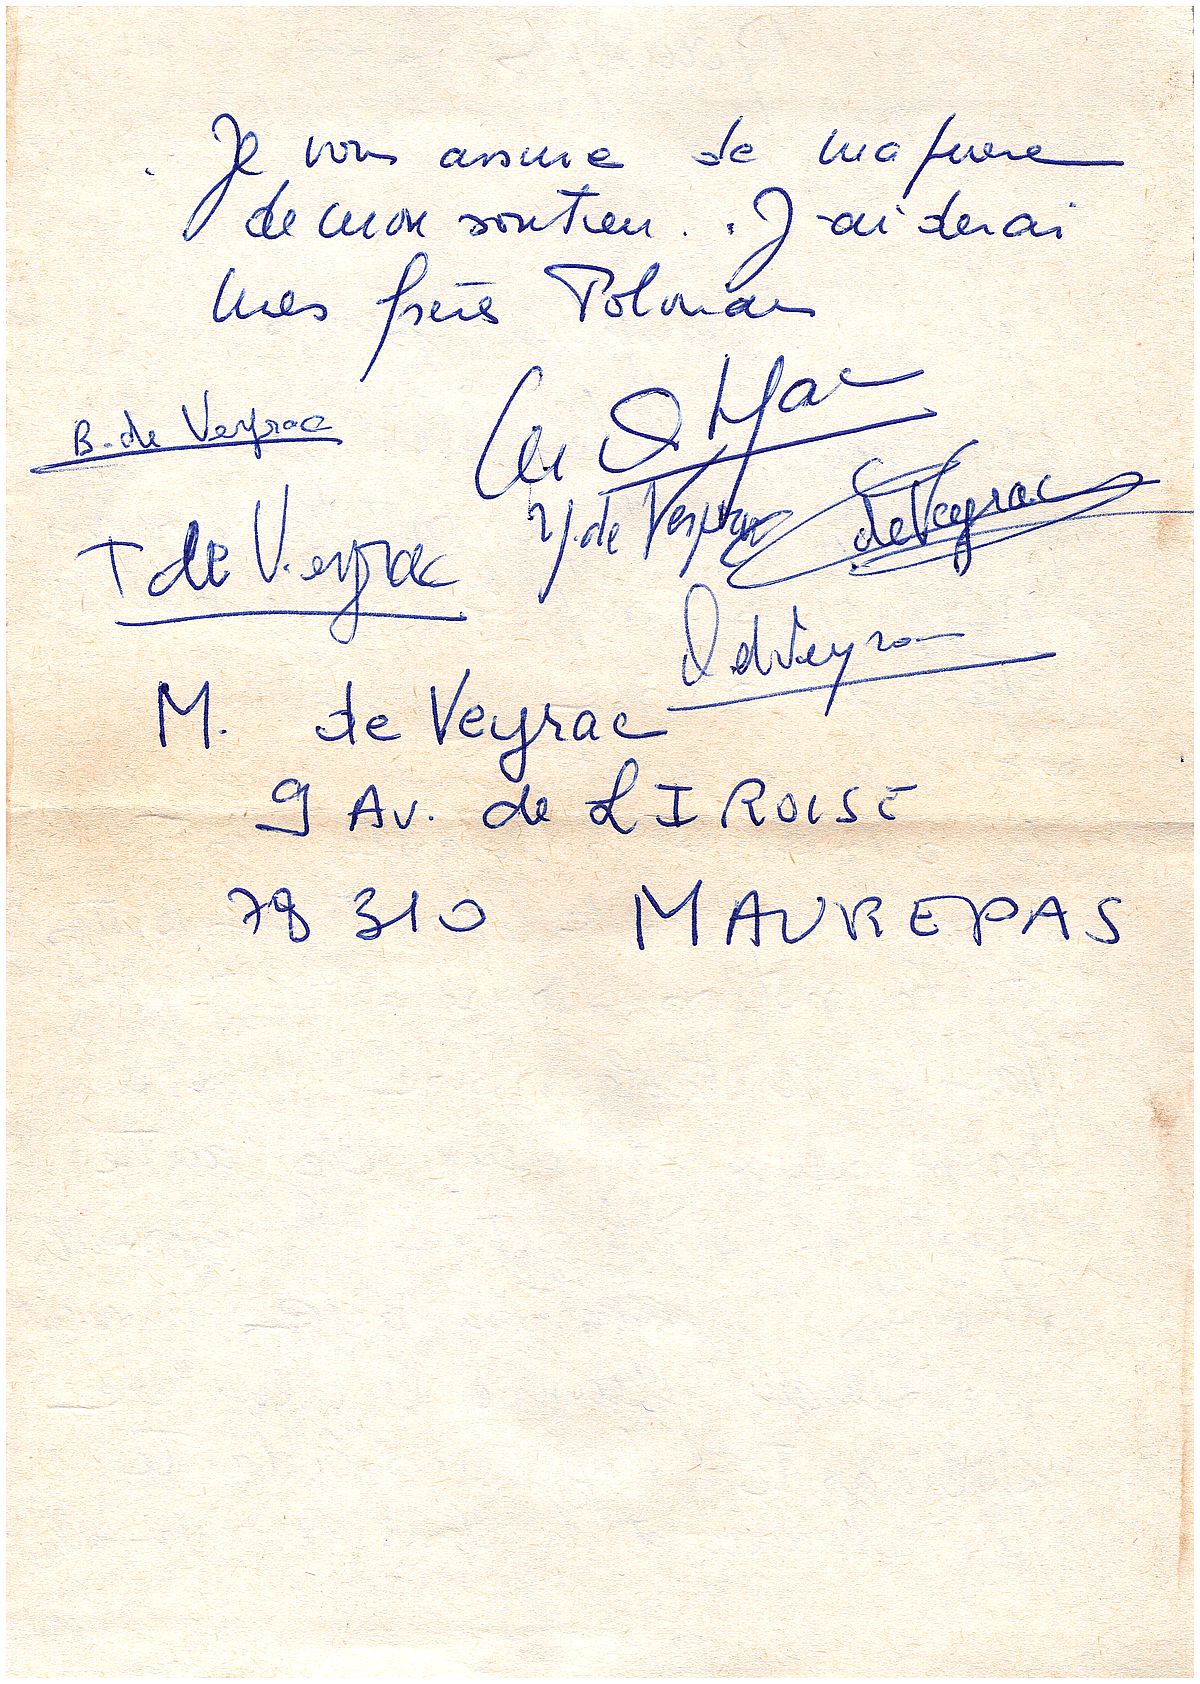 Je vous assure de ma priere
de mon soutien.. J'aiderai
mes frères Polonais
B. de Veyrac
Y. de Veyrac
de Veyrac
T de Veyrac
de Veyrac
M. de Veyrac
9 Av. de L IROISE
78 310 MAUREPAS